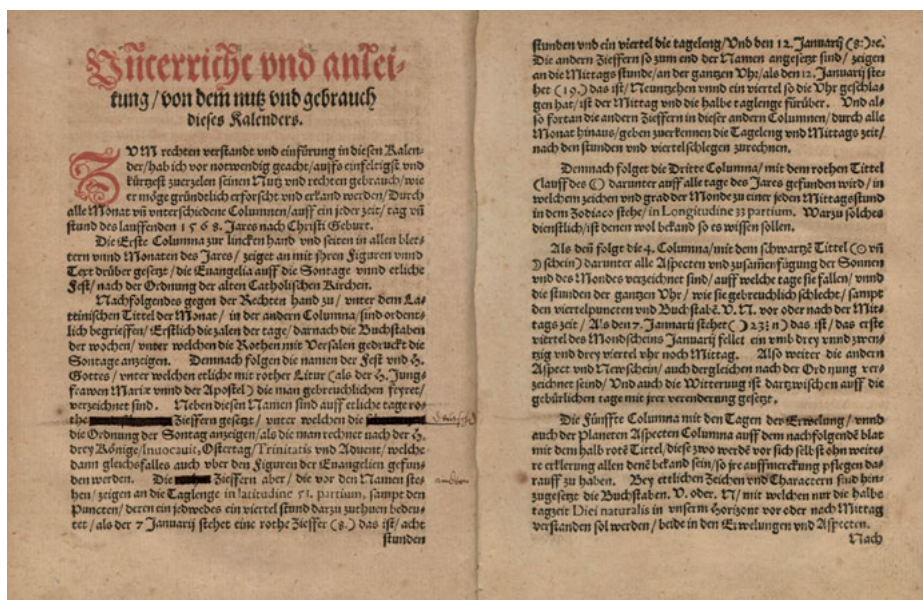 Vnterricht vnd anlei-
tung / von dem nutz vnd gebrauch
dieses Kalenders.
ZVM rechten verstandt vnd einfürung in diesen Kalen-
der / hab ich vor notwendig geacht / auffs einfeltigst vnd
kürtzest zuerzelen seinen Nutz vnd rechten gebrauch / wie
er möge gründtlich erforscht vnd erkand werden / Durch
alle Monat vñ vnterschiedene Columnen / auff ein jeder zeit / tag vñ
stund des lauffenden 1568. Jares nach Christi Geburt.
Die Erste Columna zur lincken hand vnd seiten in allen blet-
tern vnnd Monaten des Jares / zeiget an mit jhren Figuren vnnd
Text drüber gesetzt / die Euangelia auff die Sontage vnnd etliche
Fest / nach der Ordnung der alten Catholischen Kirchen.
Nachfolgendes gegen der Rechten hand zu / vnter dem La-
teinischen Tittel der Monat / in der andern Columna / sind ordent-
lich begrieffen / Erstlich die zalen der tage / darnach die Buchstaben
der wochen / vnter welchen die Rothen mit Versalen gedruckt die
Sontage anzeigen. Demnach folgen die namen der Fest vnd H.
Gottes / vnter welchen etliche mit rother Litur (als der H. Jung-
frawen Mariæ vnnd der Apostel) die man gebreuchlichen feyret /
verzeichnet sind. Neben diesen Namen sind auff etliche tage ro-
the Zieffern gesetzt / vnter welchen die
die Ordnung der Sontag anzeigen / als die man rechnet nach der H.
drey Könige / Inuocauit, Ostertag / Trinitatis vnd Aduent / welche
dann gleichsfalls auch vber den Figuren der Euangelien gefun-
den werden. Die Zieffern aber / die vor den Namen ste-
hen / zeigen an die Taglenge in latitudine 51. partium, sampt den
Puncten / deren ein jedwedes ein viertel stund darzu zuthuen bedeu-
tet / als der 7 Januarij stehet eine rothe Zieffer (8.) das ist / acht
stunden
stunden vnd ein viertel die tageleng / Vnd den 12. Januarij (8:) ꝛc.
Die andern Zieffern so zum end der Namen angesetzt sind / zeigen
an die Mittags stunde / an der gantzen Vhr / als den 12. Januarij ste-
het (19.) das ist / Neuntzehen vnnd ein viertel so die Vhr geschla-
gen hat / ist der Mittag vnd die halbe taglenge fürüber. Vnd al-
so fortan die andern Zieffern in dieser andern Columnen / durch alle
Monat hinaus / geben zuerkennen die Tageleng vnd Mittags zeit /
nach den stunden vnd viertelschlegen zurechnen.
Demnach folget die Dritte Columna / mit dem rothen Tittel
(lauff des ☾) darunter auff alle tage des Jares gefunden wird / in
welchem zeichen vnd grad der Monde zu einer jeden Mittagsstund
in dem Zodiaco stehe / in Longitudine 33 partium. Warzu solches
dienstlich / ist denen wol bekand so es wissen sollen.
Als deñ folgt die 4. Columna / mit dem schwartzē Tittel (☉ vñ
☽ schein) darunter alle Aspecten vnd zusam̃enfügung der Sonnen
vnd des Mondes verzeichnet sind / auff welche tage sie fallen / vnnd
die stunden der gantzen Vhr / wie sie gebreuchlich schlecht / sampt
den viertelpuncten vnd Buchstabē. V. N. vor oder nach der Mit-
tags zeit / Als den 7. Jannarii stehet (☽ 23⁝ n) das ist / das erste
viertel des Mondscheins Januarij fellet ein vmb drey vnnd zwen-
tzig vnd drey viertel vhr noch Mittag. Also weiter die andern
Aspect vnd Newschein / auch dergleichen nach der Ordnung ver-
zeichnet seind / Vnd auch die Witterung ist dartzwischen auff die
gebürlichen tage mit jrer verenderung gesetzt.
Die Fünffte Columna mit den Tagen der Erwelung / vnnd
auch der Planeten Aspecten Columna auff dem nachfolgendē blat
mit dem halb rotē Tittel / diese zwo werdē vor sich selbst ohn weite-
re erklerung allen denē bekand sein / so jre auffmerckung pflegen dar-
rauff zu haben. Bey etlichen Zeichen vnd Charactern sind hin-
zugesetzt die Buchstaben. V. oder. N / mit welchen nur die halbe
tagzeit Diei naturalis in vnserm Horizont vor oder nach Mittag
verstanden sol werden / beide in den Erwelungen vnd Aspecten.
Nach